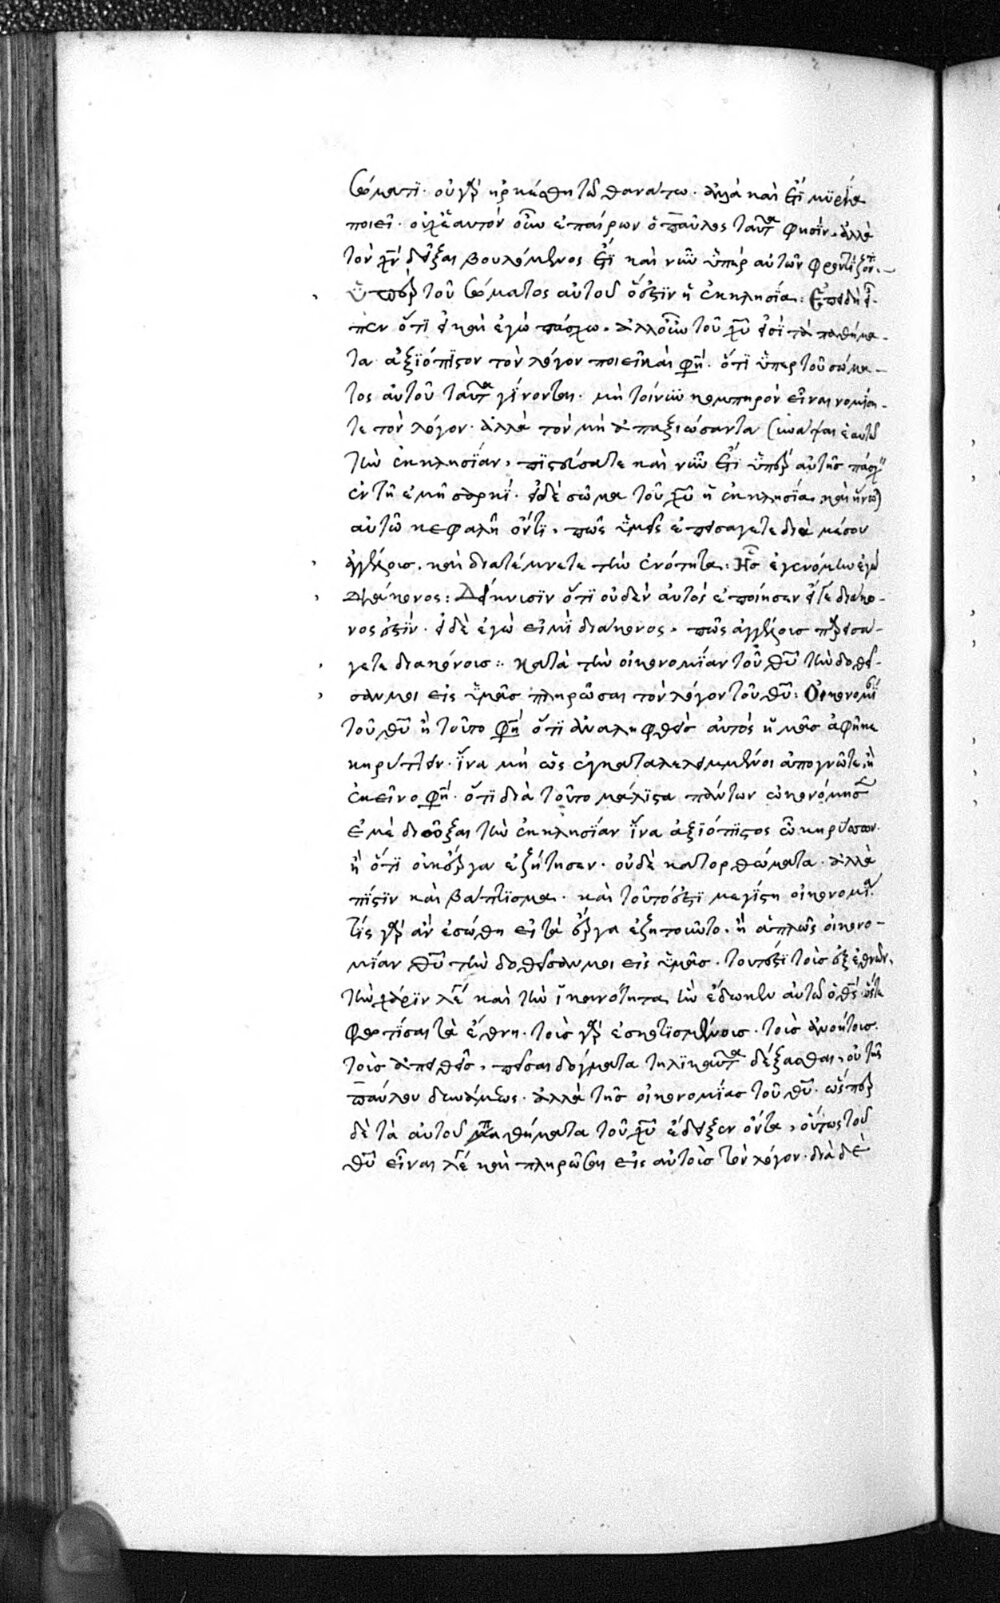 σώματι· οὐ γὰρ ἠρκέσθη τῷ θανάτω· ἀλλὰ καὶ ἔτι μυρία
ποιεῖ· οὐχ ἑαυτὸν οὖν ἐπαίρων ὁ παῦλος ταῦτα φησίν· ἀλλὰ
τὸν χν δεῖξαι βουλόμενος ἔτι καὶ νῦν ὑπὲρ αὐτῶν φροντίζοντα·
Ὑπὲρ τοῦ σώματος αὐτοῦ ὅ ἐστιν ἡ ἐκκλησία: Ἐπειδὴ εἶ-
πεν ὅτι εἰ καὶ ἐγὼ πάσχω· ἀλλ' οὖν τοῦ χυ εἰσὶ τὰ παθήμα-
τα· ἀξιόπιστον τὸν λόγον ποιεῖ καὶ φησί· ὅτι ὑπὲρ τοῦ σώμα-
τος αὐτοῦ ταῦτα γίνονται· μὴ τοίνυν κομπηρὸν εἶναι νομίση-
τε τὸν λόγον· ἀλλὰ τὸν μὴ ἀπαξιώσαντα συνάψαι ἑαυτῷ
τὴν ἐκκλησίαν, πιστεύσατε καὶ νῦν ἔτι ὑπὲρ αὐτῆς πάσχειν
ἐν τῇ ἐμῇ σαρκί· εἰ δὲ σῶμα τοῦ χυ ἡ ἐκκλησία καὶ ἥνωται
αὐτῷ κεφαλῇ ὄντι, πῶς ὑμεῖς ἐπεισάγετε διὰ μέσου
ἀγγέλους, καὶ διατέμνετε τὴν ἑνότητα: Ἧς ἐγενόμην ἐγὼ
Διάκονος: Δείκνυσιν ὅτι οὐδὲν αὐτὸς ἐποίησεν εἴγε διάκο-
νος ἐστίν· εἰ δὲ ἐγὼ εἰμὶ διάκονος, πῶς ἀγγέλους προσά-
γετε διακόνους: Κατὰ τὴν οἰκονομίαν τοῦ θυ τὴν δοθεῖ-
σαν μοι εἰς ὑμᾶς πληρῶσαι τὸν λόγον τοῦ θυ: Οἰκονομία
τοῦ θυ ἢ τοῦτο φησί ὅτι ἀναληφθεὶς αὐτὸς ἡμᾶς ἀφῆκε
κηρύττειν· ἵνα μὴ ὡς ἐγκαταλελειμμένοι ἀπογνῶτε, ἢ
ἐκεῖνο φησί· ὅτι διὰ τοῦτο μάλιστα πάντων ὠκονόμησεν
ἐμὲ διῶξαι τὴν ἐκκλησίαν ἵνα ἀξιόπιστος ὦ κηρύσσων·
ἢ ὅτι οὐκ ἔργα ἐζήτησεν· οὐδὲ κατορθώματα· ἀλλὰ
πίστιν καὶ βάπτισμα· καὶ τοῦτό ἐστι μεγίστη οἰκονομία·
τίς γὰρ ἂν ἐσώθη εἰ τὰ ἔργα ἐξητοῦντο· ἢ ἁπλῶς οἰκονο-
μίαν θυ τὴν δοθεῖσαν μοι εἰς ὑμᾶς· τουτέστι τοῖς ἐξ ἐθνῶν,
τὴν χάριν λέγει καὶ τὴν ἱκανότητα ἣν ἔδωκεν αὐτῷ ὁ θς ὥστε
φωτίσαι τὰ ἔθνη· τοὺς γὰρ ἐσκοτισμένους· τοὺς ἀνοήτους·
τοὺς ἀπειθεῖς, πεῖσαι δόγματα τηλικαῦτα δέξασθαι, οὐ τῆς
παύλου δυνάμεως· ἀλλὰ τῆς οἰκονομίας τοῦ θυ· ὥσπερ
δὲ τὰ αὐτοῦ παθήματα τοῦ χυ ἔδειξεν ὄντα, οὕτως τοῦ
θυ εἶναι λέγει καὶ πληρῶσαι εἰς αὐτοὺς τὸν λόγον· διὰ δὲ